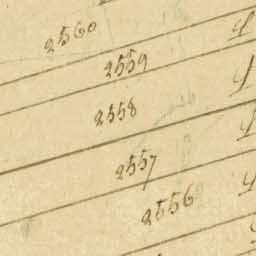 2560
2559
2558
2557
2556